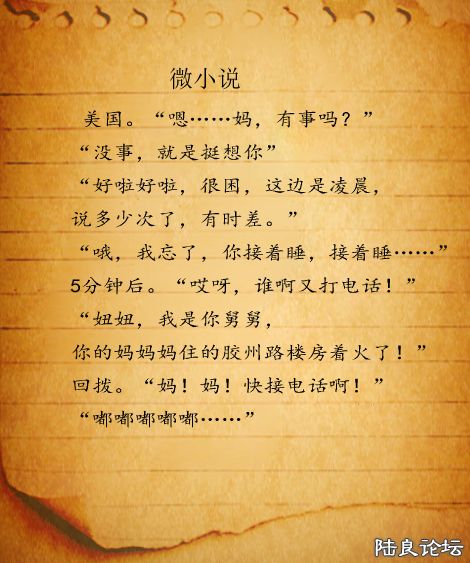 微小说
美国。“嗯……妈，有事吗？”
“没事，就是挺想你”
“好啦好啦，很困，这边是凌晨，
说多少次了，有时差。”
“哦，我忘了，你接着睡，接着睡……”
5分钟后。“哎呀，谁啊又打电话！”
“妞妞，我是你舅舅，
你的妈妈妈住的胶州路楼房着火了！”
回拨。“妈！妈！快接电话啊！”
“嘟嘟嘟嘟嘟……”
陆良论坛